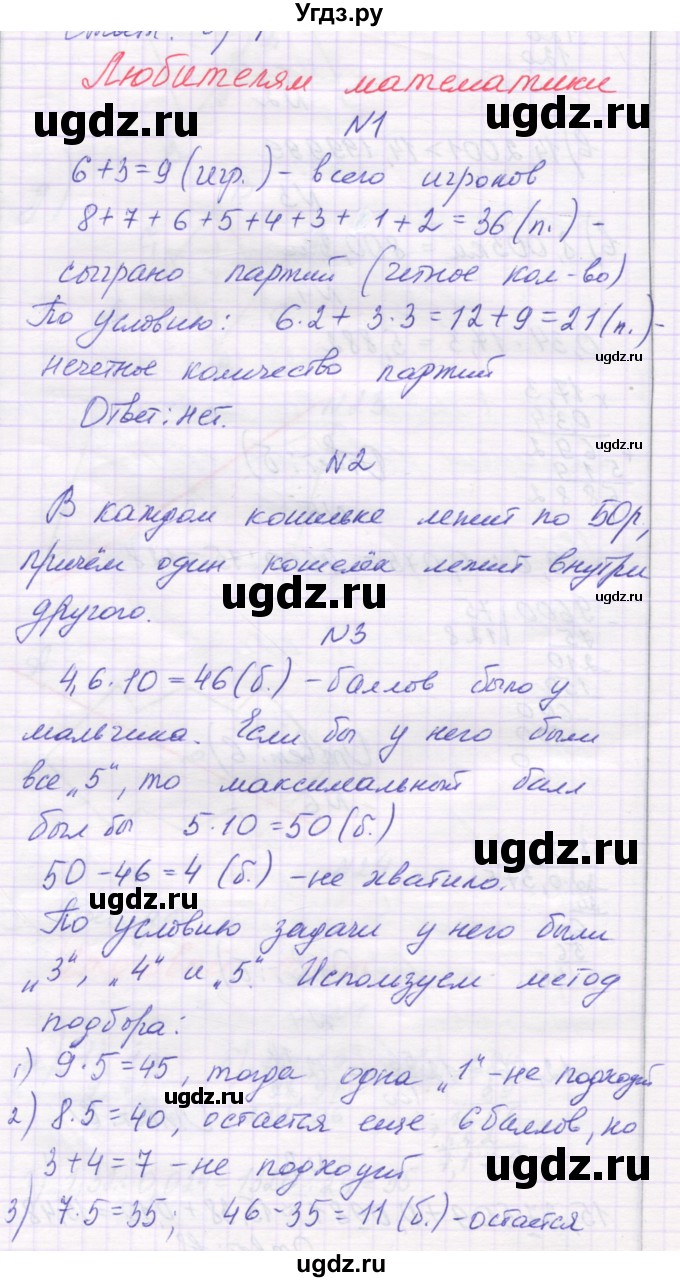 Угдз.ру
Любителям математики
N1
ugdz.ru
ugdz.ru
6+3=9 (игр.) - всего игроков
8+7+6+5+4+3+1+2=36 (п.) -
сыграно партий (четное кол-во)
По условию: 6·2+3·3=12+9=21 (п.) -
ugdz.ru
нечетное количество партий
Ответ: нет.
ugdz.ru
N2
В каждом кошельке лежит по 50р,
причём один кошелёк лежит внутри
ugdz.ru
другого.
N3
ugdz.ru
4,6·10=46 (б.) - баллов было у
мальчика. Если бы у него были
все „5“, то максимальный балл
был бы 5·10=50 (б.)
ugdz.ru
50-46=4 (б.) - не хватило.
ugdz.ru
По условию задачи у него были
„3“, „4“ и „5“. Используем метод
подбора:
1) 9·5=45, тогда одна „1“ - не подходит
ugdz.ru
2) 8·5=40, остается еще 6 баллов, но
3+4=7 - не подходит
3) 7·5=35; 46-35=11 (б.) - остается
ugdz.ru